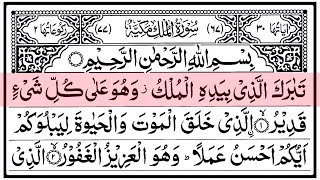 اٰيَاتُهَا ٣٠ (٦٧) سُوْرَةُ الْمُلْكِ مَكِّيَّةٌ (٧٧) رُكُوْعَاتُهَا ٢
بِسْمِ اللّٰهِ الرَّحْمٰنِ الرَّحِيْمِ
تَبٰرَكَ الَّذِيْ بِيَدِهِ الْمُلْكُ ز وَهُوَ عَلٰى كُلِّ شَيْءٍ
قَدِيْرٌ ۙ ۱ الَّذِيْ خَلَقَ الْمَوْتَ وَالْحَيٰوةَ لِيَبْلُوَكُمْ
اَيُّكُمْ اَحْسَنُ عَمَلًا ؕ وَهُوَ الْعَزِيْزُ الْغَفُوْرُ ۙ ۲ الَّذِيْ